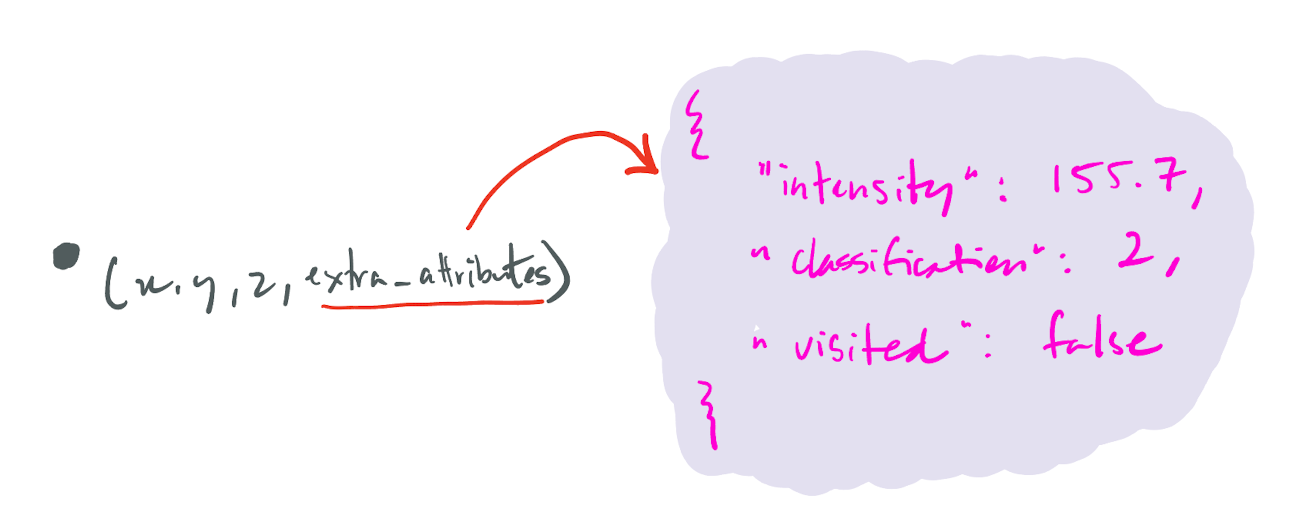 (x, y, z, extra_attributes)
{
"intensity": 155.7,
"classification": 2,
"visited": false
}